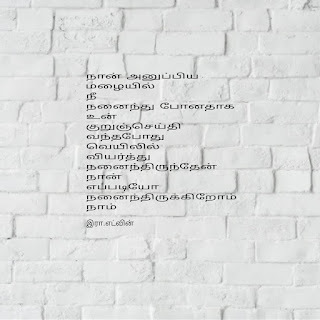 நான் அனுப்பிய
மழையில்
நீ
நனைந்து போனதாக
உன்
குறுஞ்செய்தி
வந்தபோது
வெயிலில்
வியர்த்து
நனைந்திருந்தேன்
நான்
எப்படியோ
நனைந்திருக்கிறோம்
நாம்
இரா.எட்வின்